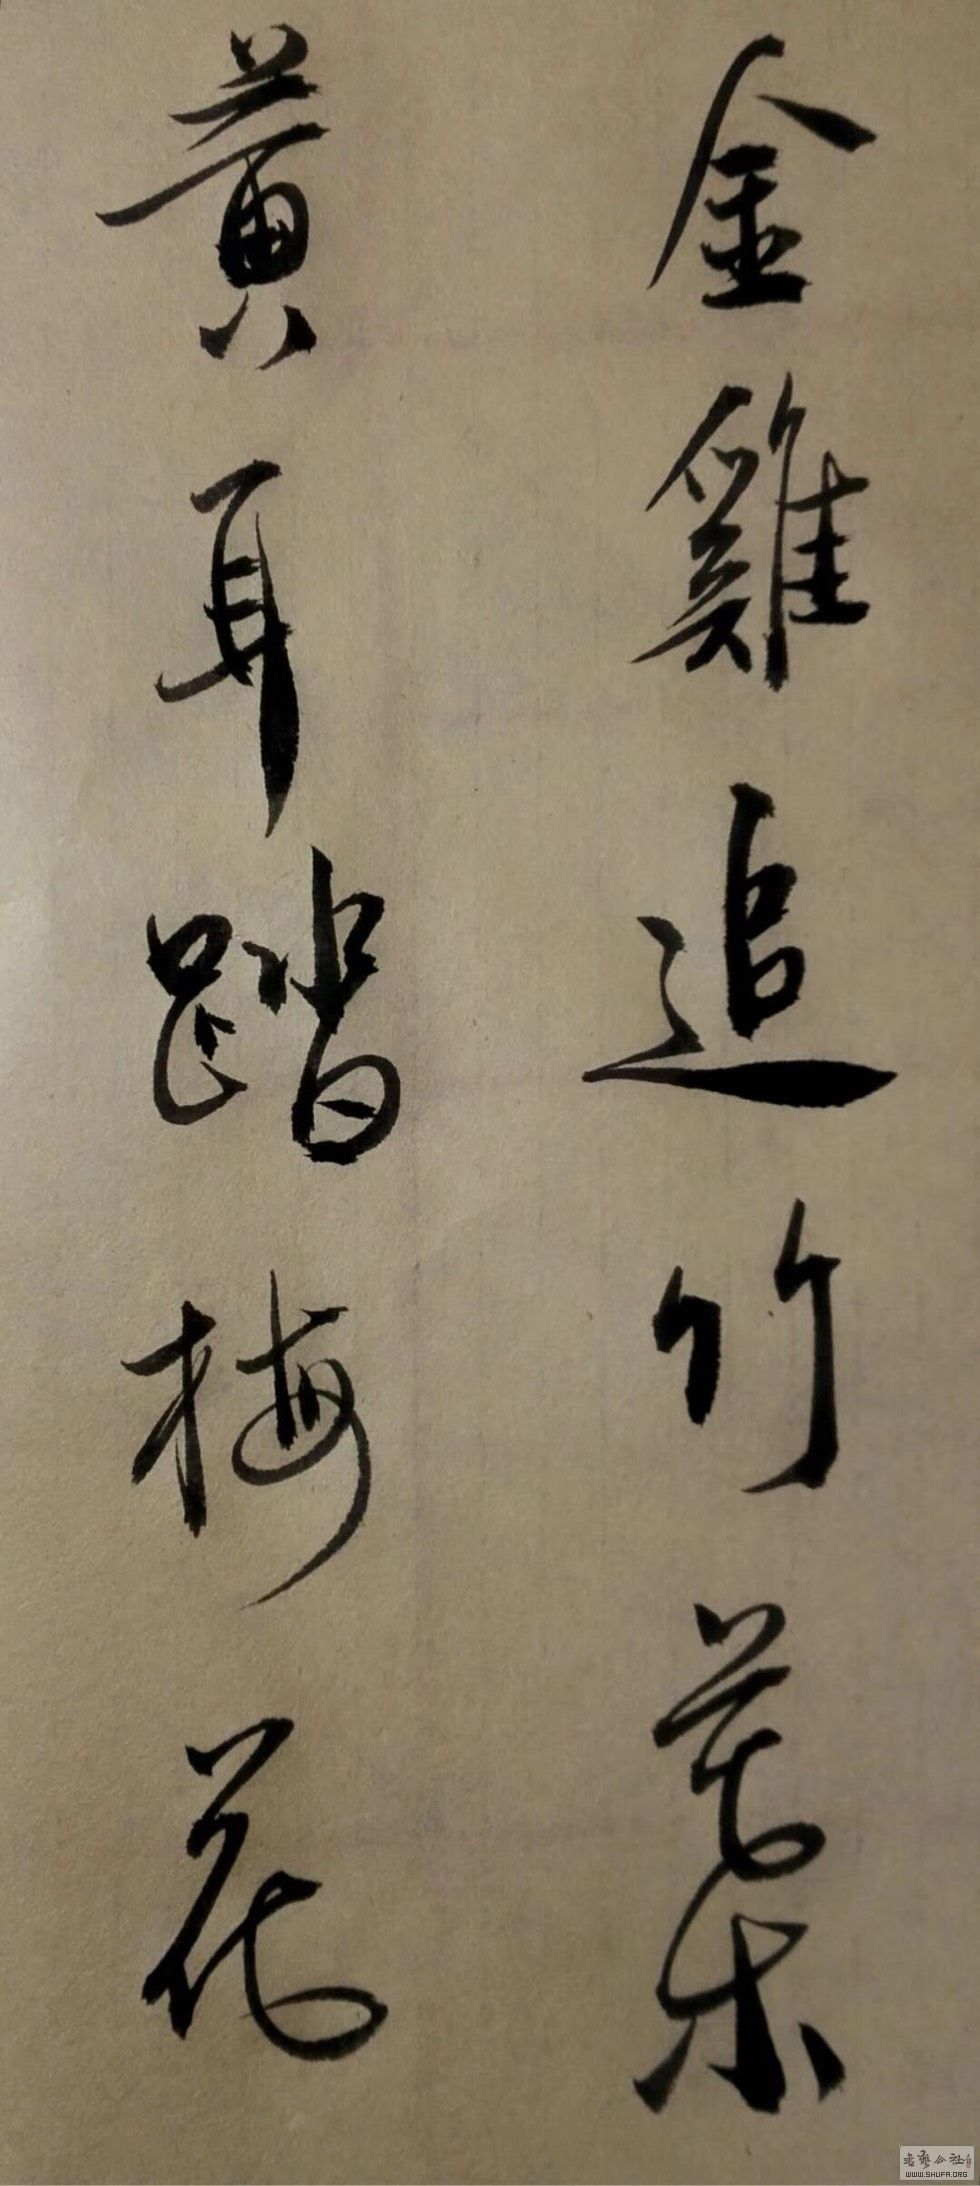 金雞追竹葉
黄耳踏梅花
书艺公社
WWW.SHUFA.ORG